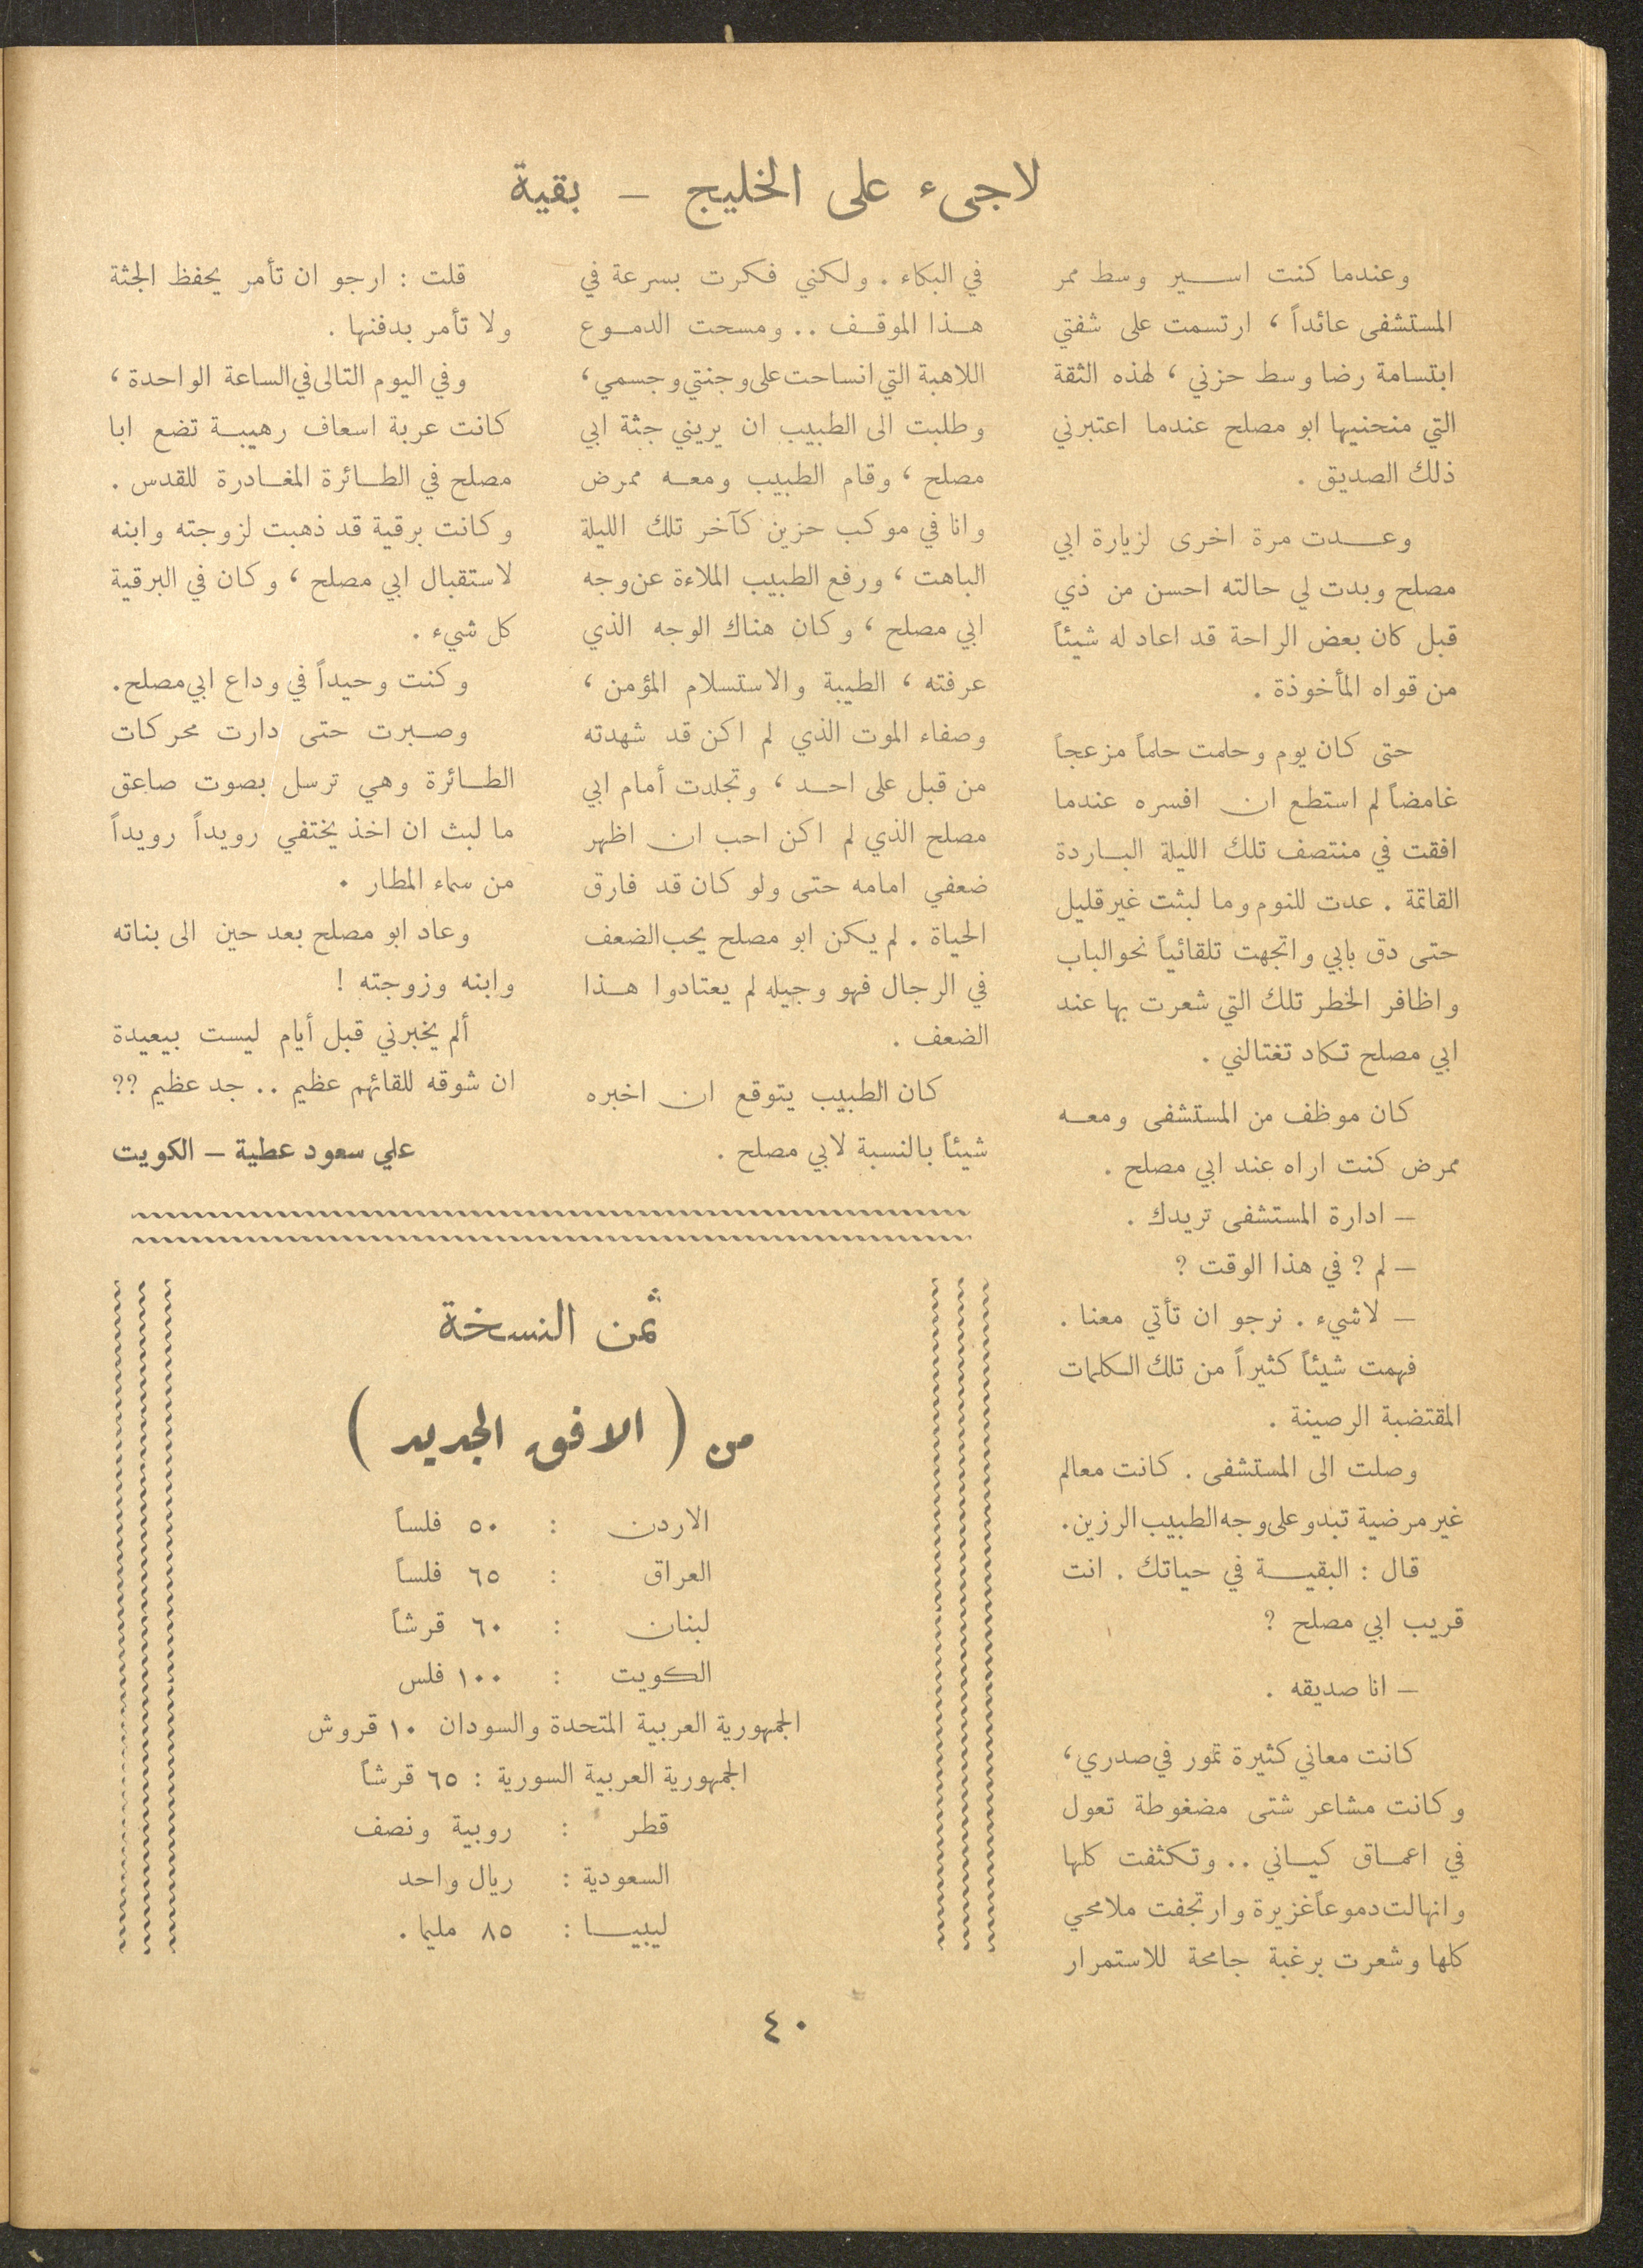 لاجىء على الخليج – بقية
وعندما كنت اسير وسط ممر
المستشفى عائداً ، ارتسمت على شفتي
ابتسامة رضا وسط حزني ، لهذه الثقة
التي منحنيها ابو مصلح عندما اعتبرني
ذلك الصديق .
وعدت مرة اخرى لزيارة ابي
مصلح وبدت لي حالته احسن من ذي
قبل كان بعض الراحة قد اعاد له شيئاً
من قواه المأخوذة .
حتى كان يوم وحلمت حلماً مزعجاً
غامضاً لم استطع ان افسره عندما
افقت في منتصف تلك الليلة الباردة
القاتمة . عدت للنوم وما لبثت غير قليل
حتى دق بابي واتجهت تلقائياً نحو الباب
واظافر الخطر تلك التي شعرت بها عند
ابي مصلح تكاد تغتالني .
كان موظف من المستشفى ومعه
ممرض كنت اراه عند ابي مصلح .
– ادارة المستشفى تريدك .
– لم ? في هذا الوقت ?
– لاشيء . نرجو ان تأتي معنا .
فهمت شيئاً كثيراً من تلك الكلمات
المقتضبة الرصينة .
وصلت الى المستشفى . كانت معالم
غير مرضية تبدو على وجه الطبيب الرزين .
قال : البقية في حياتك . انت
قريب ابي مصلح ?
– انا صديقه .
كانت معاني كثيرة تمور في صدري ،
وكانت مشاعر شتى مضغوطة تعول
في اعماق كياني .. وتكثفت كلها
وانهالت دموعاً غزيرة وارتجفت ملامحي
كلها وشعرت برغبة جامحة للاستمرار
في البكاء . ولكني فكرت بسرعة في
هذا الموقف .. ومسحت الدموع
اللاهبة التي انساحت على وجنتي وجسمي ،
وطلبت الى الطبيب ان يريني جثة ابي
مصلح ، وقام الطبيب ومعه ممرض
وانا في موكب حزين كآخر تلك الليلة
الباهت ، ورفع الطبيب الملاءة عن وجه
ابي مصلح ، وكان هناك الوجه الذي
عرفته ، الطيبة والاستسلام المؤمن ،
وصفاء الموت الذي لم اكن قد شهدته
من قبل على احد ، وتجلدت أمام ابي
مصلح الذي لم اكن احب ان اظهر
ضعفي امامه حتى ولو كان قد فارق
الحياة . لم يكن ابو مصلح يحب الضعف
في الرجال فهو وجيله لم يعتادوا هذا
الضعف .
كان الطبيب يتوقع ان اخبره
شيئاً بالنسبة لابي مصلح .
قلت : ارجو ان تأمر بحفظ الجثة
ولا تأمر بدفنها .
وفي اليوم التالي في الساعة الواحدة ،
كانت عربة اسعاف رهيبة تضع ابا
مصلح في الطائرة المغادرة للقدس .
وكانت برقية قد ذهبت لزوجته وابنه
لاستقبال ابي مصلح ، وكان في البرقية
كل شيء .
وكنت وحيداً في وداع ابي مصلح .
وصبرت حتى دارت محركات
الطائرة وهي ترسل بصوت صاعق
ما لبث ان اخذ يختفي رويداً رويداً
من سماء المطار .
وعاد ابو مصلح بعد حين الى بناته
وابنه وزوجته !
ألم يخبرني قبل أيام ليست ببعيدة
ان شوقه للقائهم عظيم .. جد عظيم ??
علي سعود عطية – الكويت
ثمن النسخة
من ( الافق الجديد )
الاردن : ٥٠ فلساً
العراق : ٦٥ فلساً
لبنان : ٦٠ قرشاً
الكويت : ١٠٠ فلس
الجمهورية العربية المتحدة والسودان ١٠ قروش
الجمهورية العربية السورية : ٦٥ قرشاً
قطر : روبية ونصف
السعودية : ريال واحد
ليبيا : ٨٥ مليما .
٤٠